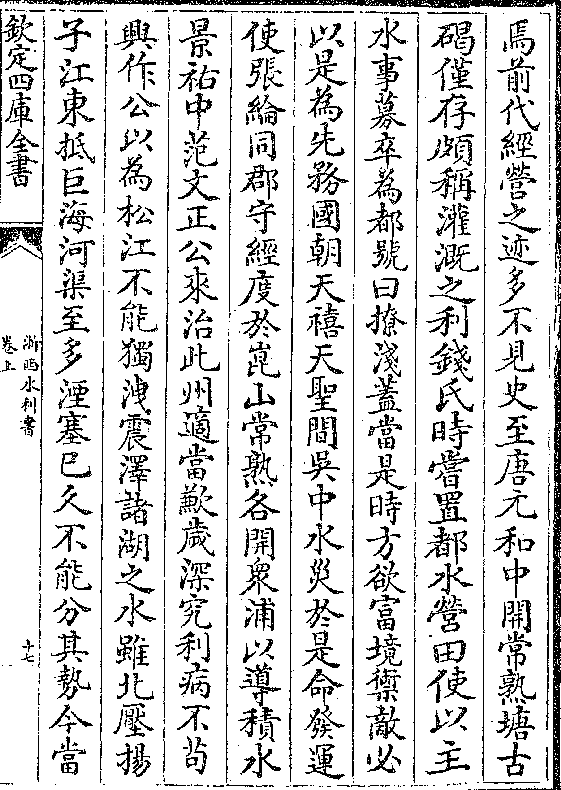 焉前代經營之迹多不見史至唐元和中開常熟塘古
碣僅存頗稱灌溉之利錢氏時嘗置都水營田使以主
水事募卒為都號曰撩淺蓋當是時方欲富境禦敵必
以是為先務國朝天禧天聖間吳中水災於是命發運
使張綸同郡守經度於崑山常熟各開衆浦以導積水
景祐中范文正公來治此州適當歉歲深究利病不苟
興作公以為松江不能獨洩震澤諸湖之水雖北壓揚
子江東抵巨海河渠至多湮塞已久不能分其勢今當
欽定四庫全書
浙西水利書
卷上
十七